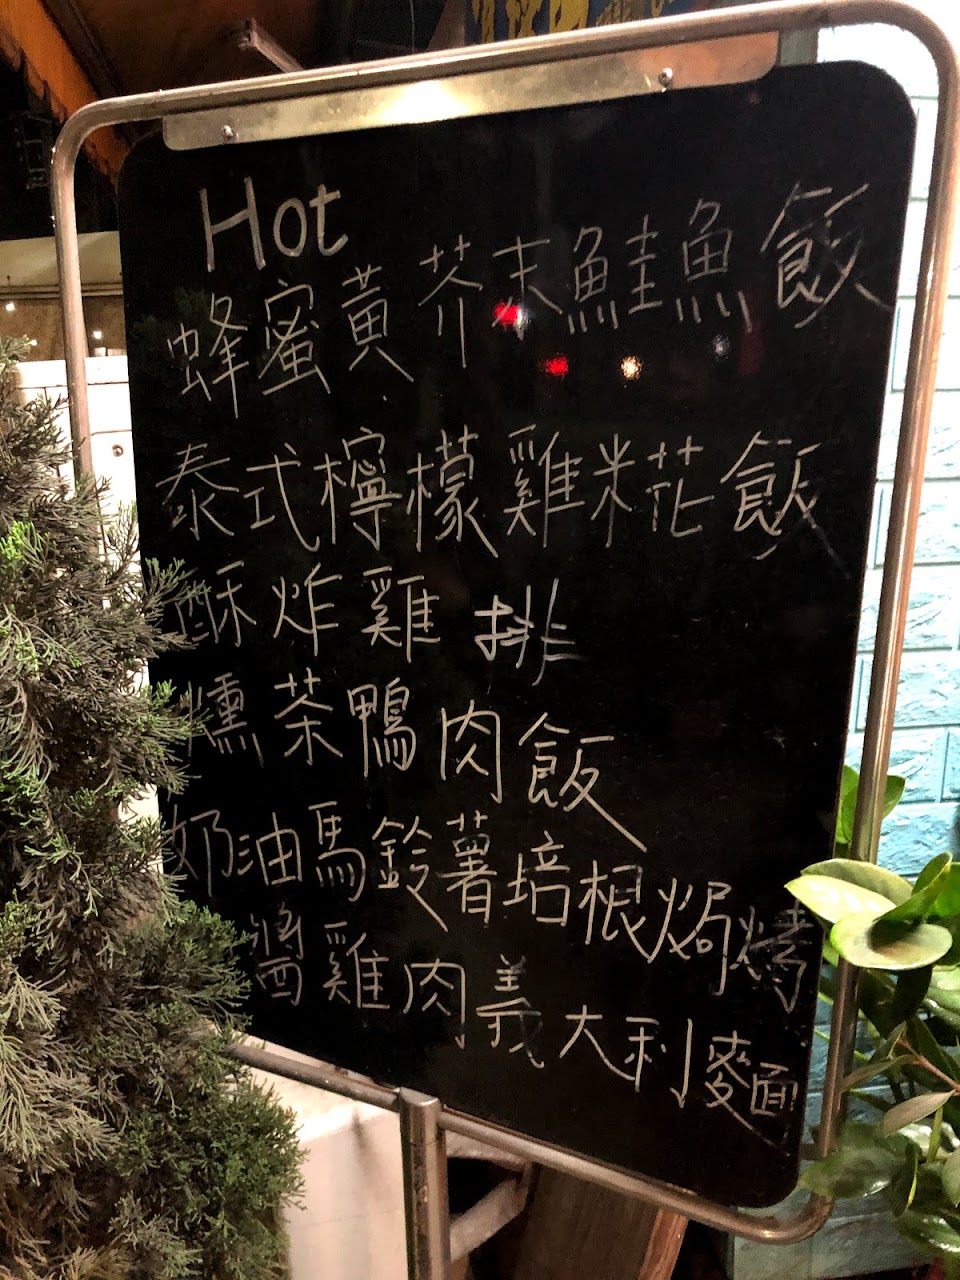 Hot
蜂蜜黃芥末鮭魚飯
泰式檸檬雞米花飯
酥炸雞排
燻茶鴨肉飯
奶油馬鈴薯培根焗烤
醬雞肉義大利麵